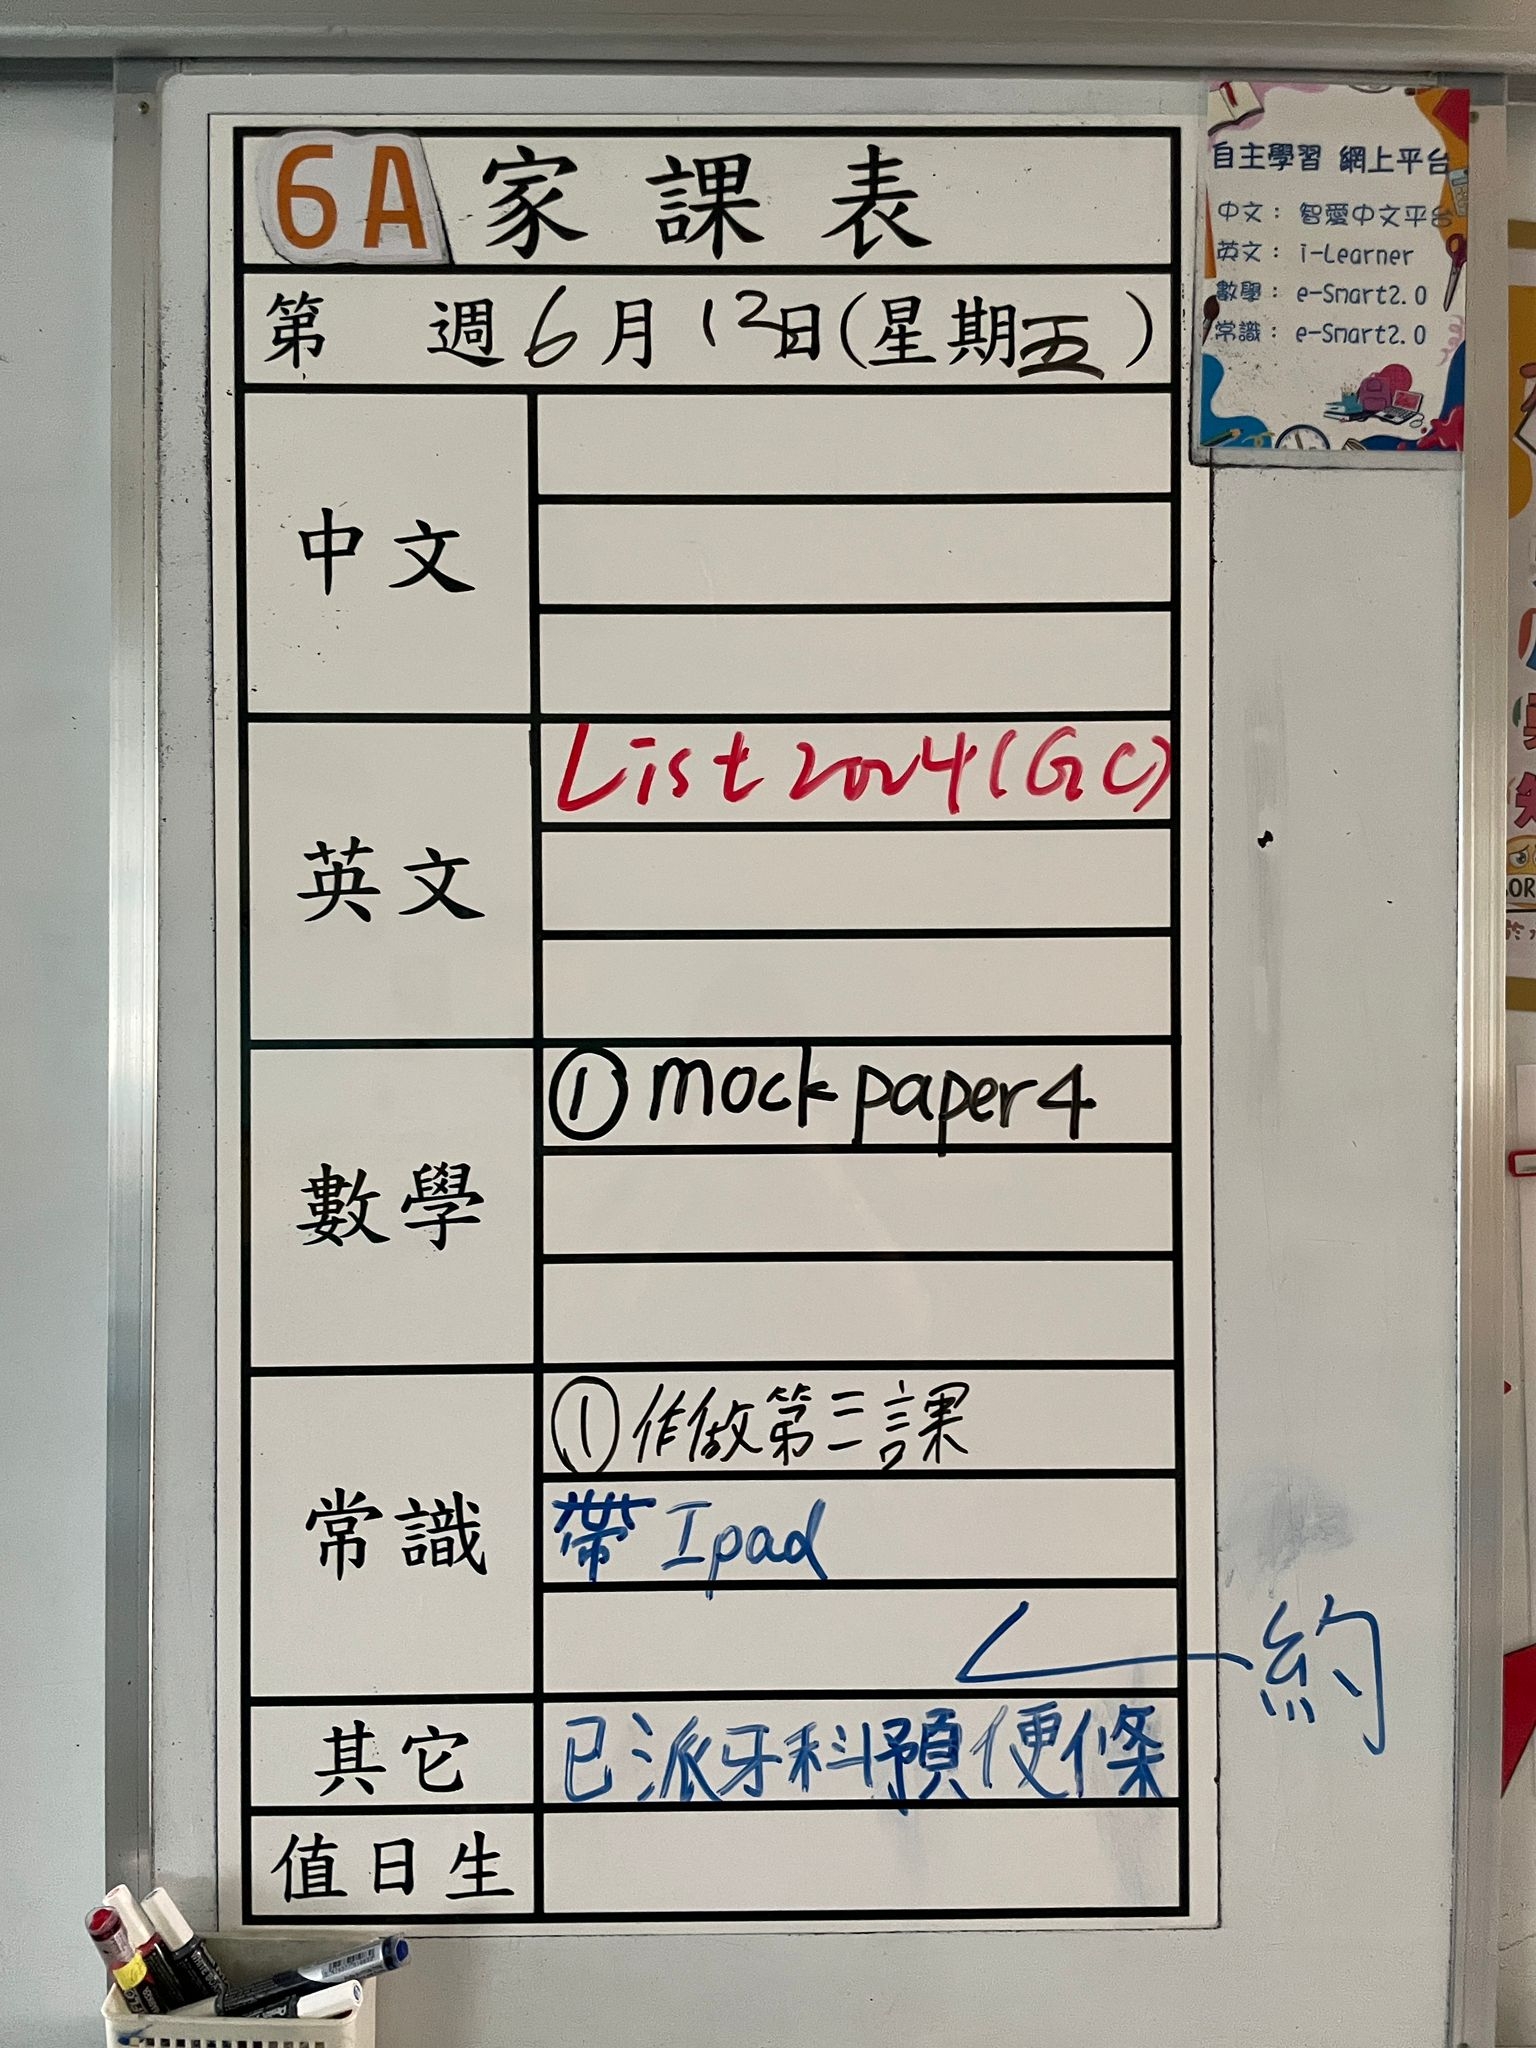 6A 家課表
第 週 6月12日(星期五)
中文
英文
List 2024 (GC)
數學
① mock paper 4
常識
① 作做第三課
帶 Ipad
其它
已派牙科預便條
約
值日生
自主學習 網上平台
中文： 智愛中文平台
英文： i-Learner
數學： e-Smart2.0
常識： e-Smart2.0